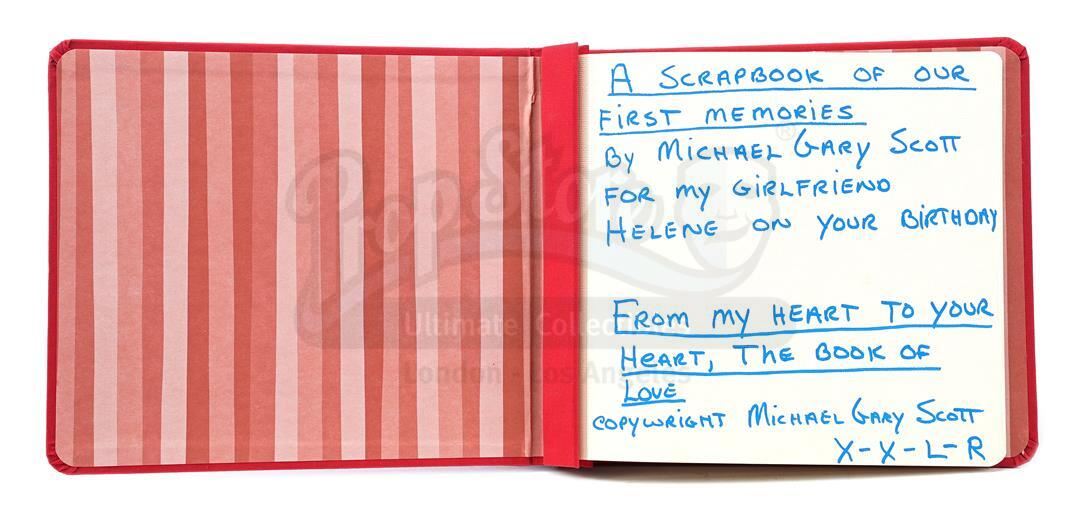 A SCRAPBOOK OF OUR
FIRST MEMORIES
By MICHAEL GARY SCOTT
FOR my GIRLFRIEND
HELENE ON YOUR BIRTHDAY
FROM my HEART TO YOUR
HEART, THE BOOK OF
LOVE
COPYWRIGHT MICHAEL GARY SCOTT
X-X-L-R
PropStore
®
Ultimate Collectables
London - Los Angeles